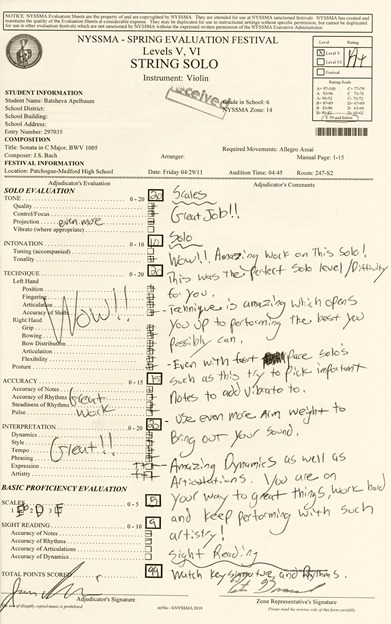 NOTICE: NYSSMA Evaluation Sheets are the property of and are copyrighted by NYSSMA. They are intended for use at NYSSMA sanctioned festivals. NYSSMA has created and maintains the quality of the Evaluation Sheets at considerable expense. They may be duplicated for use in instructional settings without specific permission, but cannot be duplicated
for use in other evaluation festivals which are not sanctioned by NYSSMA without the express written permission of the NYSSMA Executive Administrator
NYSSMA - SPRING EVALUATION FESTIVAL
Levels V, VI
STRING SOLO
Instrument: Violin
Level
Level V
Level VI
Festival
Rating Scale
received
STUDENT INFORMATION
Student Name: Batsheva Apelbaum
School District:
School Building:
School Address:
Entry Number: 297035
Grade in School: 6
NYSSMA Zone: 14
Title: Sonata in C Major, BWV 1005
Composer: J.S. Bach
Arranger:
Required Movements: Allegro Assai
Manual Page: 1-15
FESTIVAL INFORMATION
Location: Patchogue-Medford High School
Date: Friday 04/29/11
Audition Time: 04:45
Room: 247-S2
Adjudicator's Evaluation
Adjudicator's Comments
SOLO EVALUATION
TONE 0 - 20 20
Quality
Control/Focus
Projection even more
Vibrato (where appropriate)
INTONATION 0 - 10 10
Tuning (accompanied)
Tonality
TECHNIQUE 0 - 20 20
Left Hand
Position
Fingering
Articulation
Accuracy of Shifts
Wow!!
Right Hand
Grip
Bowing
Bow Distribution
Articulation
Flexibility
Posture
ACCURACY 0 - 15 15
Accuracy of Notes
Accuracy of Rhythms
Steadiness of Rhythms
Pulse
Great
Work
INTERPRETATION 0 - 20 20
Dynamics
Style
Tempo
Phrasing
Expression
Artistry
Great!!
BASIC PROFICIENCY EVALUATION
SCALES 0 - 5 5
SIGHT READING 0 - 10 9
Accuracy of Notes
Accuracy of Rhythms
Accuracy of Articulations
Accuracy of Dynamics
TOTAL POINTS SCORED 99
Scales
Great Job!!
Solo
Wow!!. Amazing work on This Solo!
This was the perfect Solo level/Difficulty
for you.
- Technique is amazing which opens
You up to performing the best you
Possibly can.
- Even with fast pace solo's
such as this try to pick important
Notes to add vibrato to.
- Use even more Arm weight to
Bring out your sound.
- Amazing Dynamics as well as
Articulations. You are on
your way to great things, work hard
and keep performing with such
artistry!
Sight Reading
Watch key signature, and rhythms.
Adjudicator's Signature
Zone Representative's Signature
Use of illegally copied music is prohibited
©NYSSMA 2010
Please read the reverse side of this form carefully